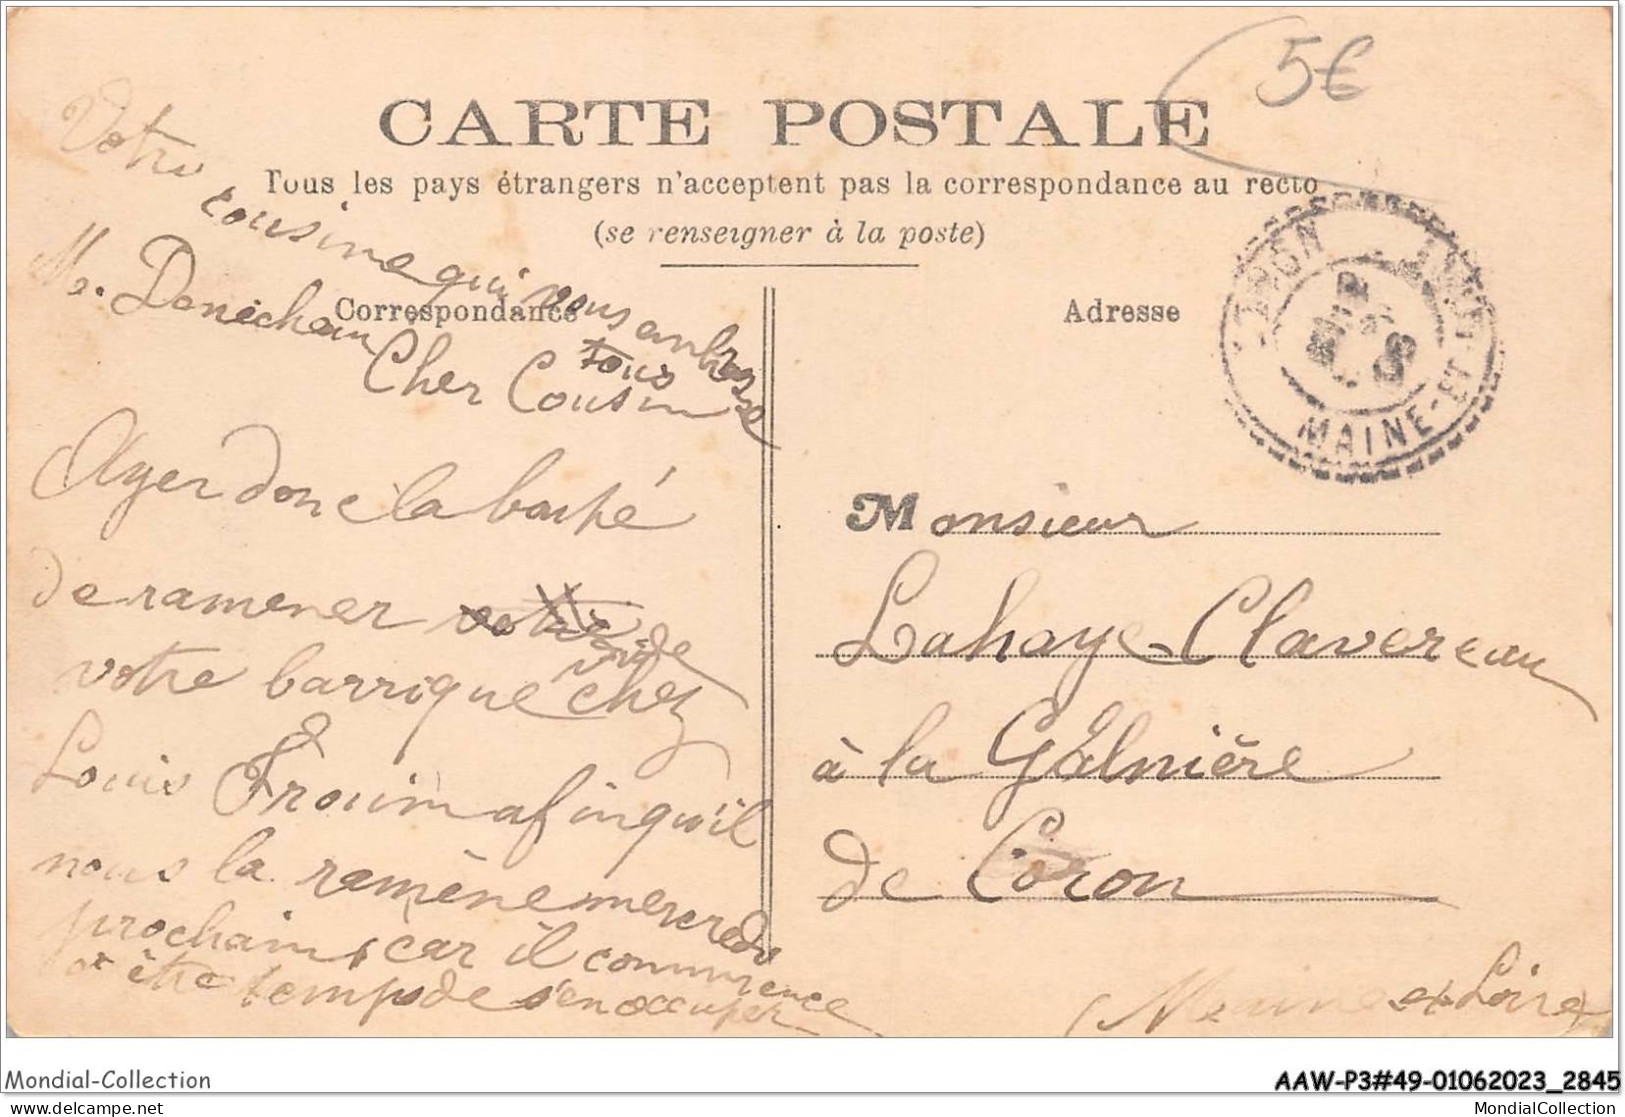 5€
CARTE POSTALE
Tous les pays étrangers n'acceptent pas la correspondance au recto
(se renseigner à la poste)
Correspondance
Adresse
CORON
MAINE-ET-
Cher Cousin
Ayer donc la bonté
de ramener
vide
votre barrique chez
Louis Frouin afin qu'il
nous la ramène mercredi
prochain, car il commence
a être temps de s'en occuper
Votre cousine qui vous embrasse
tous
M. Denécheau
Monsieur
Lahaye-Clavereau
à la Galnière
de Coron
(Maine et Loire)
Mondial-Collection
AAW-P3#49-01062023_2845
delcampe.net
MondialCollection